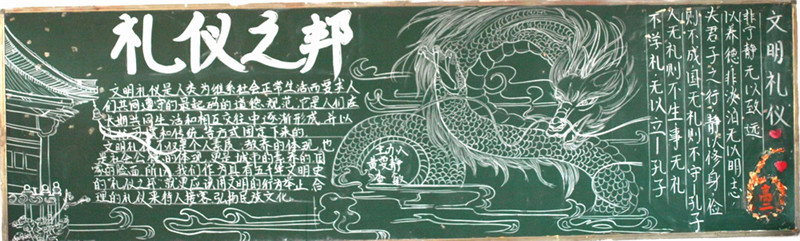 礼仪之邦
文明礼仪是人类为维系社会正常生活而要求人
们共同遵守的最起码的道德规范,它是人们在
长期共同生活和相互交往中逐渐形成,并以
和传统等方式固定下来的。
文明礼 不仅是个人素质、教养的体现,也
是社会公 的体现,更是城市的 国
家的脸面,所以,我们作为具有五千年文明史
的"礼仪之邦",就更应该用文明的行为举止,合
理的礼仪来待人接 弘扬民族文化
主办人
文明礼仪
非宁静无以致远
以养德非淡泊无以明志
夫君子之行,静以修身,俭
则不成国无礼则不宁—孔子
人无礼则不生,事无礼
不学礼,无以立—孔子